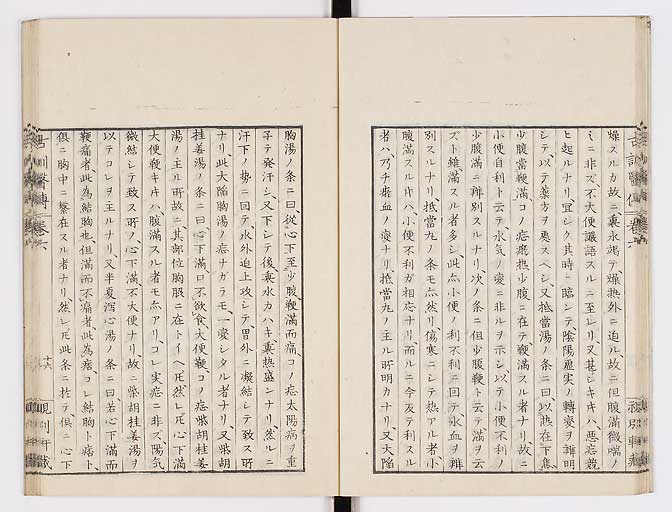 燥スルカ故ニ裏永竭テ燥熱外ニ迫ル、故ニ但腹滿微喘ノ
ミニ非ズ、不大便讝語スルニ至レリ、又甚シキ斗ハ、悪
ヒ起ルナリ、宜シク其時ニ臨シテ、陰陽虚実ノ轉變ヲ辨明
シテ、以テ薬方ヲ處スベシ、又抵當湯ノ条ニ曰、以熱在下焦、
少腹當鞕滿、コノ症瘀熱少腹ニ在テ鞕滿スル者ナリ、故ニ
小便自利ト云テ、水気ノ変ニ非ルヲ示シ、以テ小便不利ノ
少腹滿ニ辨別スルナリ、次ノ条ニ但少腹鞕ト云テ滿ヲ云
ズト雖滿スル者多シ、此小便ノ利不利ニ因テ、水血ヲ辨
別スルナリ、抵當丸ノ条モ亦然リ、傷寒ニシテ熱アル者、小
腹滿スル斗ハ、小便不利カ相応ナリ、而ルニ今反テ利スル
者ハ、乃チ瘀血ノ変ナリ、抵當丸ノ主ル所明カナリ、又大陥
胸湯ノ条ニ曰、從心下至少腹鞕滿而痛、コノ症太陽病ヲ重
子テ発汗シ、又下シテ後、裏水カハキ裏熱盛ンナリ、然ルニ
汗下ノ勢ニ因テ、水外迫上攻シテ、胃外ニ凝結シテ致ス所
ナリ、此大陥胸湯ノ症ナガラモ、一変シタル者ナリ、又柴胡
桂姜湯ノ条ニ曰、心下滿口不欲食、大便鞕、コノ症柴胡桂姜
湯ノ主ル所故ニ、其部位胸脇ニ在トイヘ𪜈、然レ𪜈心下滿
大便鞕キ斗ハ、腹滿スル者モ亦アリ、コレ実症ニ非ズ、陽気
微結シテ致ス所ノ心下滿不大便ナリ、故ニ柴胡桂姜湯ヲ
以テコレヲ主ルナリ、又半夏瀉心湯ノ条ニ曰、若心下滿而
鞕痛者、此為結胸也、但滿而不痛者、此為痞、コレ結胸ト痞ト、
倶ニ胸中ニ繋在スル者ナリ、然レ𪜈此条ニ於テ倶ニ心下
古訓醫傳 巻六
十六